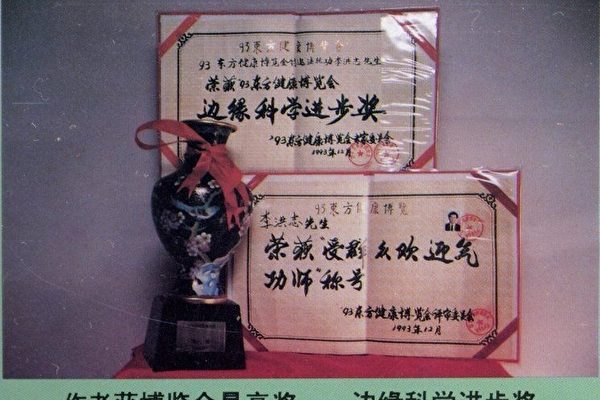 93東方健康博覽会
'93东方健康博览会创造法轮功李洪志先生
荣获'93东方健康博览会
边缘科学进步奖
'93东方健康博览会评审委员会
1993年12月
93東方健康博覽
李洪志先生
荣获"受群众欢迎气
功师"称号
'93东方健康博览会评审委员会
1993年12月
作者获博览会最高奖 边缘科学进步奖